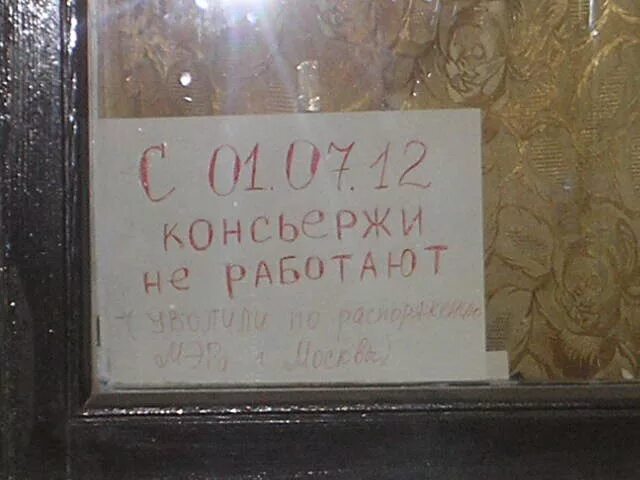 С 01.07.12
КОНСЬЕРЖИ
НЕ РАБОТАЮТ
УВОЛИЛИ ПО распоряжению
МЭРа г. Москвы